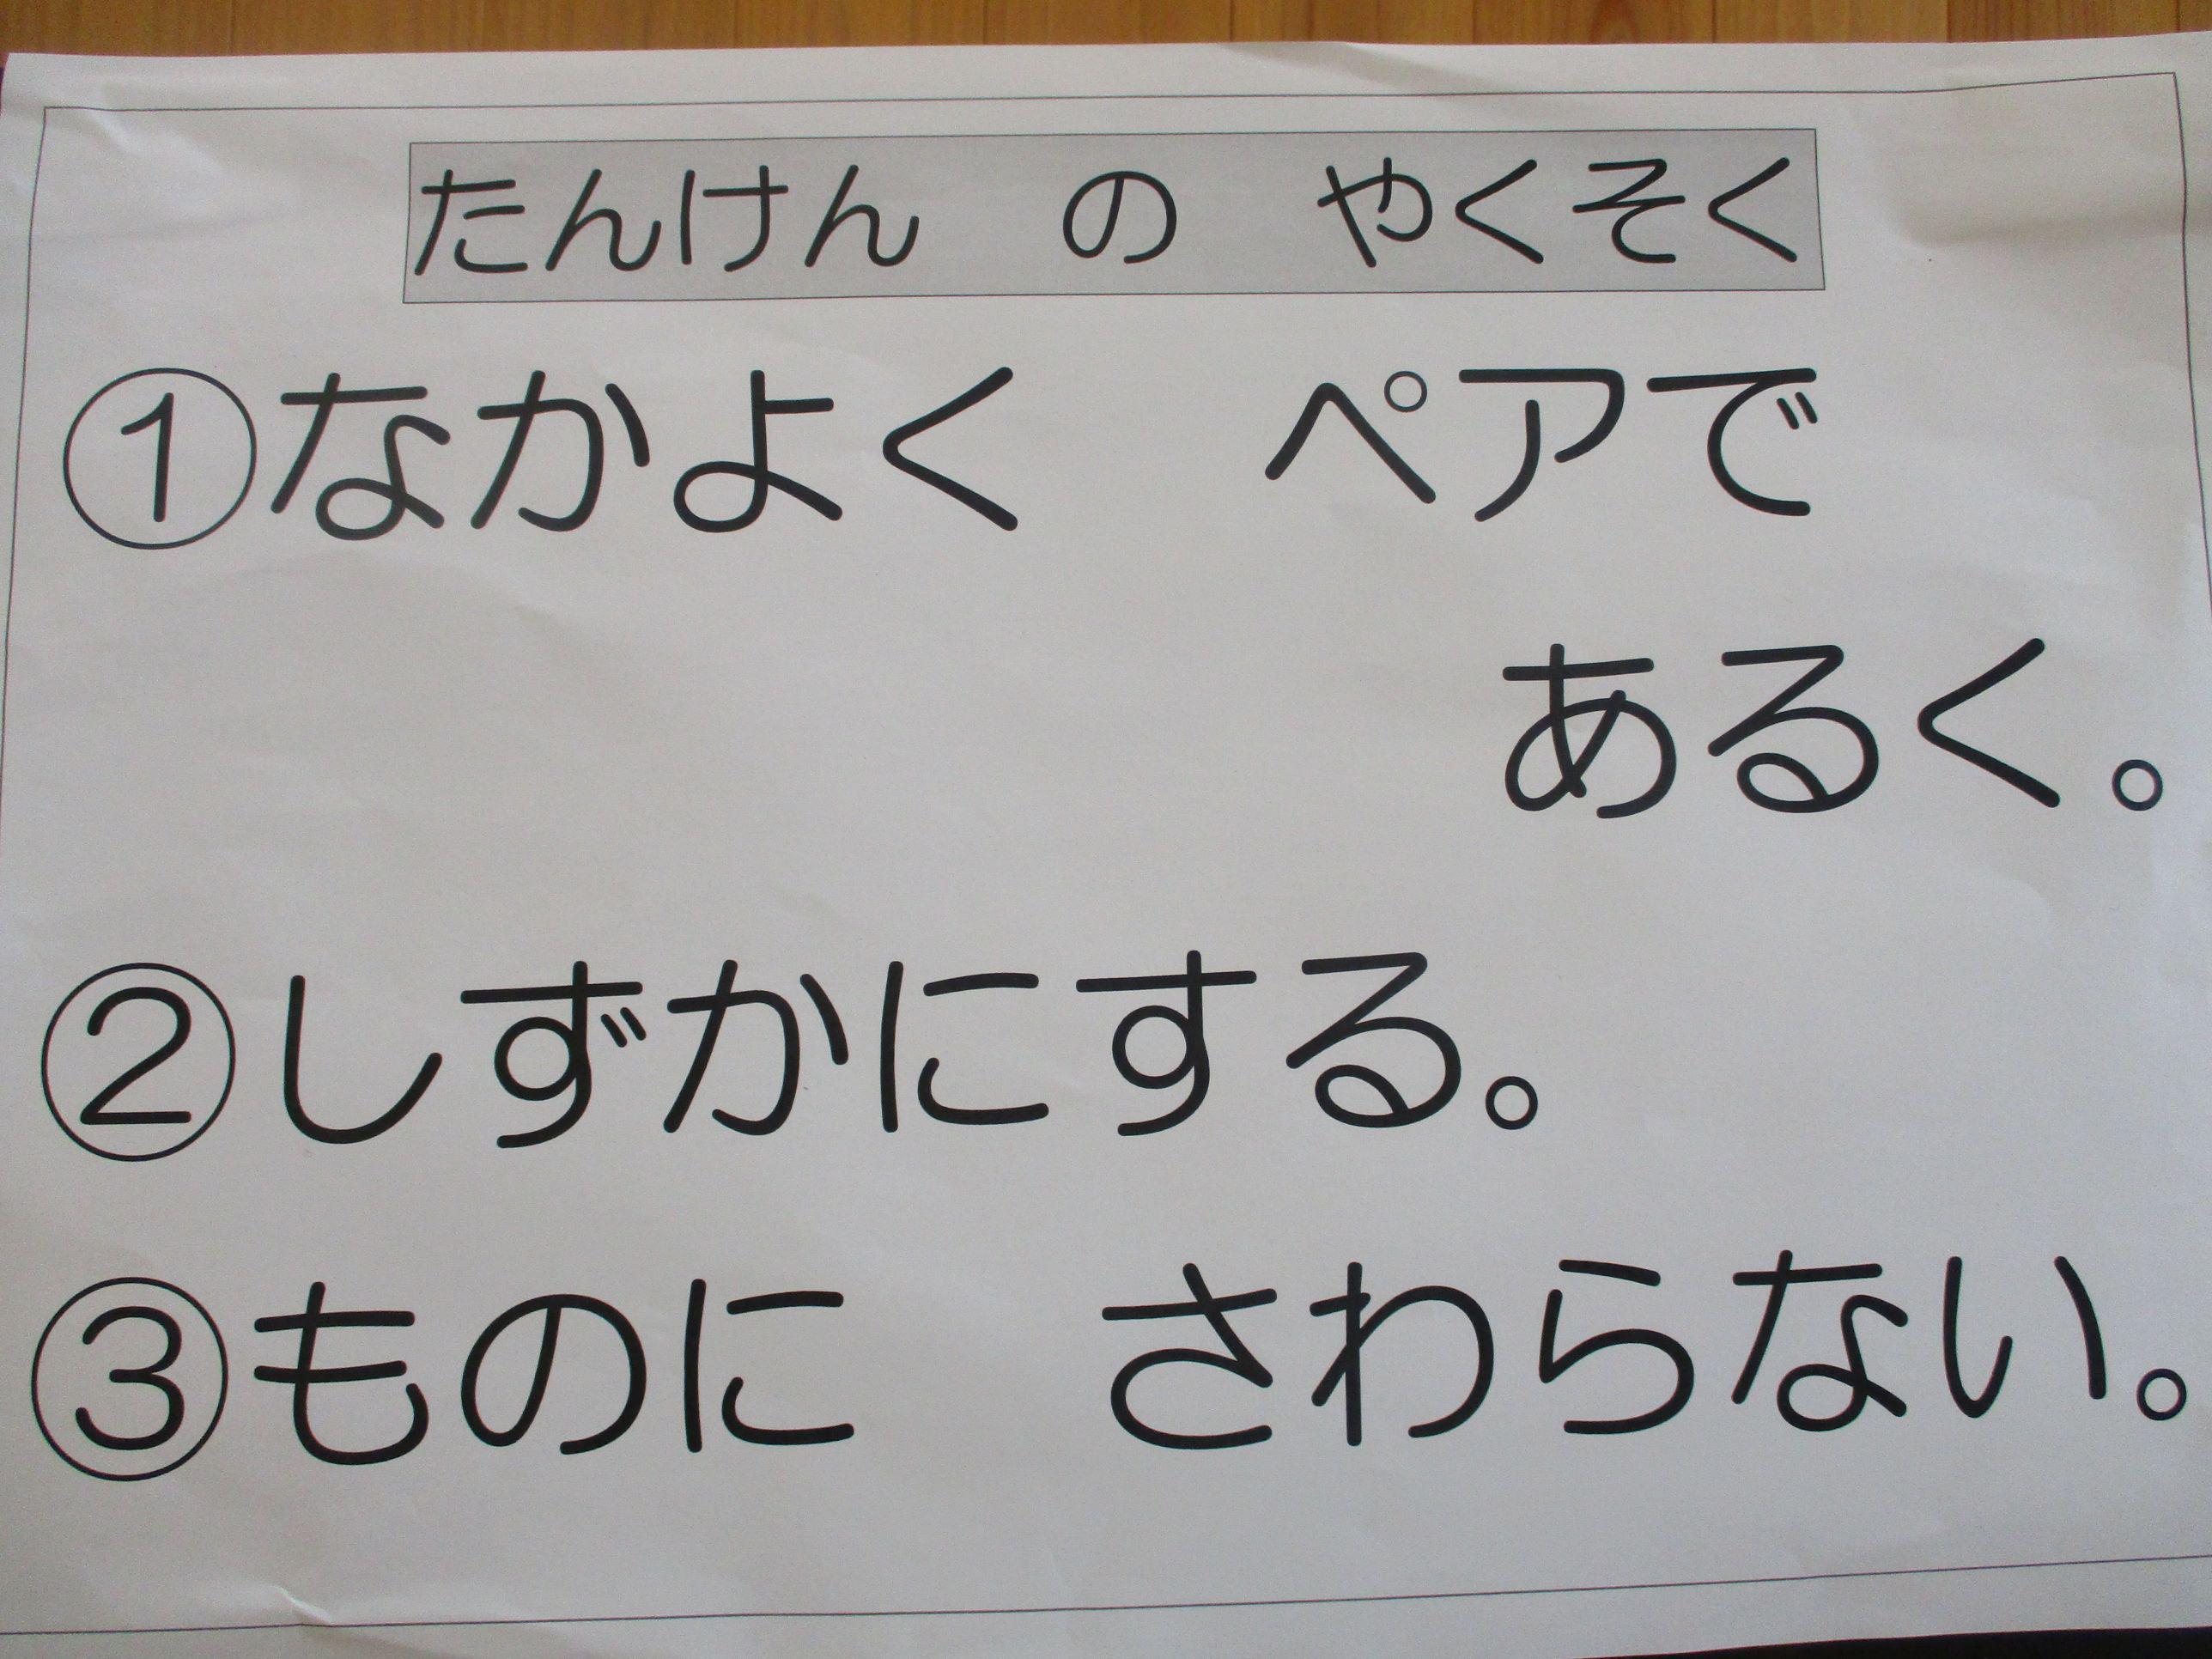 たんけん　の　やくそく
①なかよく　ペアで
あるく。
②しずかにする。
③ものに　さわらない。